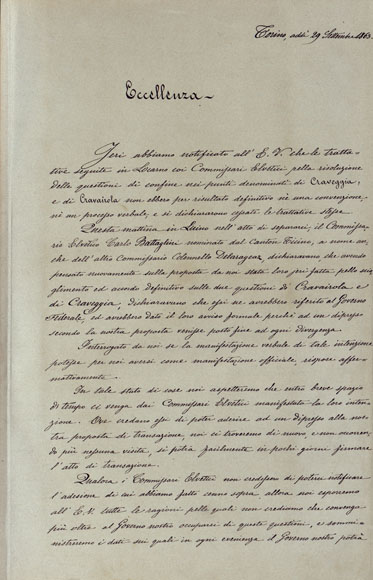 Torino, addì 29 Settembre 1863.
Eccellenza –
Jeri abbiamo notificato all' E. V. che le tratta-
tive seguite in Locarno coi Commissari Elvetici pella risoluzione
delle questioni di confine nei punti denominati di Craveggia,
e di Cravairola non ebbero per risultato definitivo nè una convenzione
nè un processo verbale, e si dichiararono cessate le trattative stesse.
Questa mattina in Luino nell' atto di separarci, il Commissa-
rio Elvetico Carlo Battaglini nominato dal Canton Ticino, a nome an-
che dell' altro Commissario Colonnello Delarageaz, dichiaravano che avendo
pensato nuovamente sulla proposta da noi stata loro jeri fatta pello scio-
glimento ed accordo definitivo sulle due questioni di Cravairola e
di Craveggia, dichiaravano che essi ne avrebbero riferito al Governo
Federale ed avrebbero dato il loro avviso formale perchè ad un dipresso
secondo la nostra proposta venisse posto fine ad ogni divergenza.
Interrogato da noi se la manifestazione verbale di tale intenzione
potesse per noi aversi come manifestazione officiale, rispose affer-
mativamente.
In tale stato di cose noi aspetteremo che entro breve spazio
di tempo ci venga dai Commissari Elvetici manifestata la loro inten-
zione. Ove credano essi di poter aderire ad un dipresso alla no-
stra proposta di transazione, noi ci troveremo di nuovo, e non occorren-
do più nessuna visita, si potrà facilmente in pochi giorni firmare
l' atto di transazione.
Qualora i Commissari Elvetici non credessero di poterci notificare
l' adesione di cui abbiamo fatto cenno sopra, allora noi esporremo
all' E. V. tutte le ragioni pelle quali non crediamo che convenga
più oltre al Governo nostro occuparsi di queste questioni, e sommi-
nistreremo i dati sui quali in ogni evenienza il Governo nostro potrà